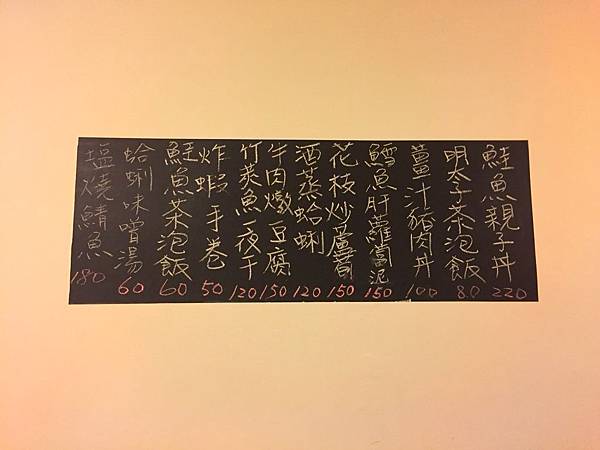 鮭魚親子丼 220
明太子茶泡飯 80
薑汁豬肉丼 100
鱈魚肝蘿蔔泥 150
花枝炒蘆筍 150
酒蒸蛤蜊 120
牛肉燉豆腐 150
竹莢魚一夜干 120
炸蝦手卷 50
鮭魚茶泡飯 60
蛤蜊味噌湯 60
塩燒鯖魚 180